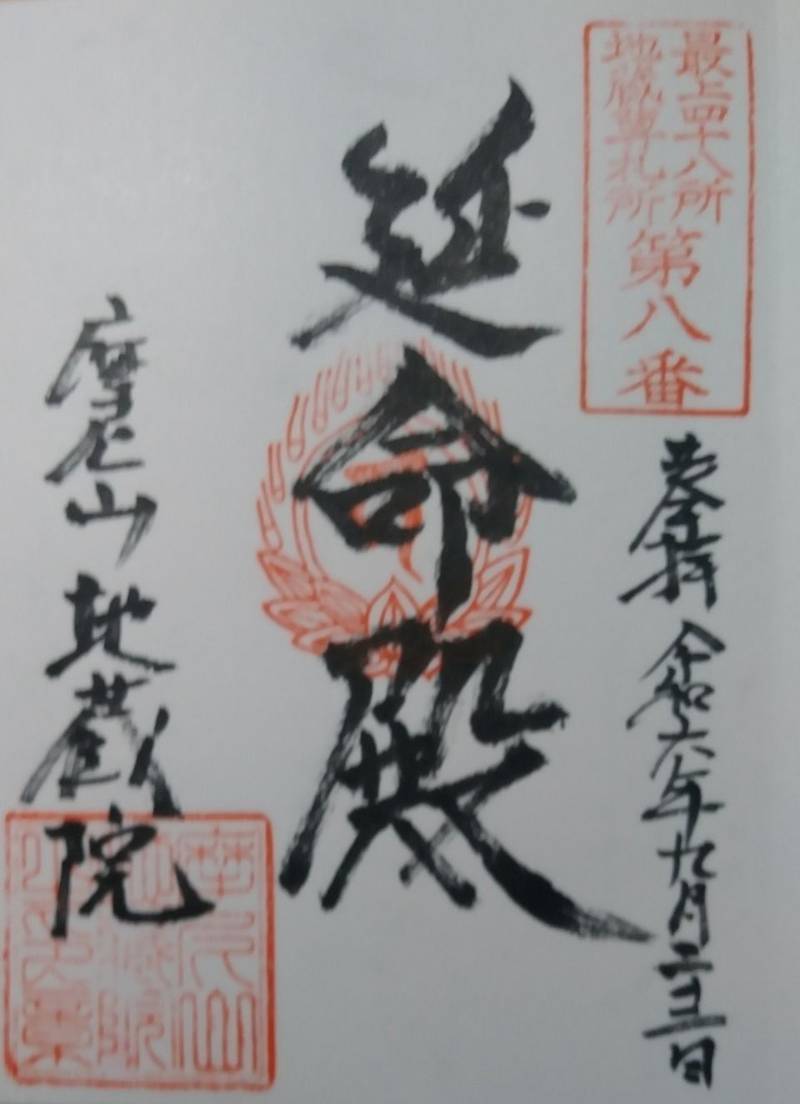 最上四十八所
地蔵尊札所
第八番
奉拝 令和六年九月二十三日
延命殿
摩尼山 地蔵院
摩尼山
地蔵院